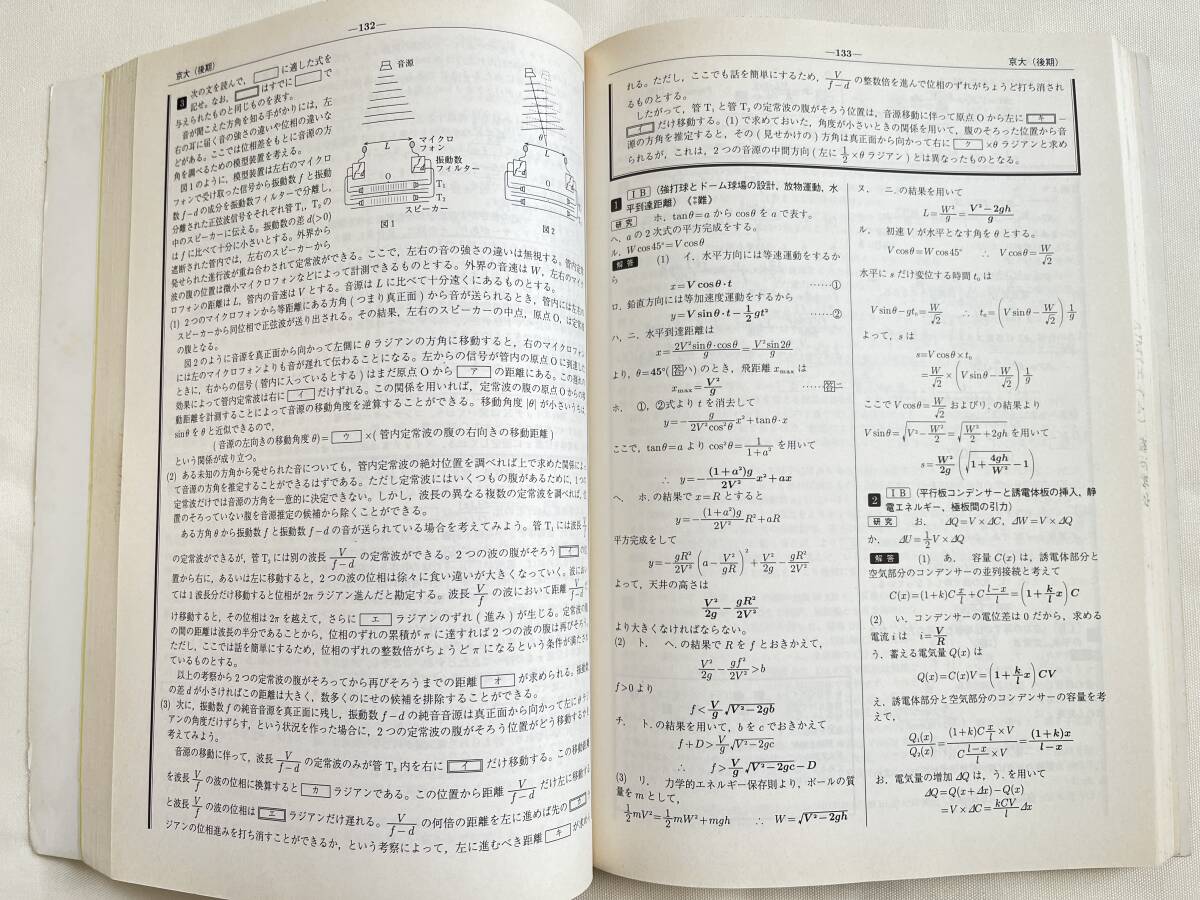 —132—
京大（後期）
3 次の文を読んで，□に適した式を
記せ。なお，□はすでに□で
与えられたものと同じものを表す。
音が聞こえた方角を知る手がかりには，左
右の耳に届く音の強さの違いや位相の違いな
どがある。ここでは位相差をもとに音源の方
角を調べるための模型装置を考える。
図1のように，模型装置は左右のマイクロ
フォンで受け取った信号から振動数fと振動
数f−dの成分を振動数フィルターで分離し，
分離された正弦波信号をそれぞれ管T₁，T₂の
中のスピーカーに伝える。振動数の差d(>0)
はfに比べて十分に小さいとする。外界から
遮断された管内では，左右のスピーカーから
発せられた進行波が重ね合わされて定常波ができる。ここで，左右の音の強さの違いは無視する。管内定常
波の腹の位置は微小マイクロフォンなどによって計測できるものとする。外界の音速はW，左右のマイク
ロフォンの距離はL，管内の音速はVとする。音源はLに比べて十分遠くにあるものとする。
(1) 2つのマイクロフォンから等距離にある方角（つまり真正面）から音が送られるとき，管内には左右の
スピーカーから同位相で正弦波が送り出される。その結果，左右のスピーカーの中点，原点O，は定常波
の腹となる。
図2のように音源を真正面から向かって左側にθラジアンの方角に移動すると，右のマイクロフォン
には左のマイクロフォンよりも音が遅れて伝わることになる。左からの信号が管内の原点Oに到達した
ときに，右からの信号（管内に入っているとする）はまだ原点Oから ア の距離にある。この遅れの
効果によって管内定常波は右に イ だけずれる。この関係を用いれば，定常波の腹の原点Oからの移
動距離を計測することによって音源の移動角度を逆算することができる。移動角度|θ|が小さいうちは
sinθをθと近似できるので，
(音源の左向きの移動角度θ)= ウ ×(管内定常波の腹の右向きの移動距離)
という関係が成り立つ。
(2) ある未知の方角から発せられた音についても，管内定常波の絶対位置を調べれば上で求めた関係によっ
て音源の方角を推定することができるはずである。ただし定常波にはいくつもの腹があるために，1つの
定常波だけでは音源の方角を一意的に決定できない。しかし，波長の異なる複数の定常波を調べれば，位
置のそろっていない腹を音源推定の候補から除くことができる。
ある方角θから振動数fと振動数f−dの音が送られている場合を考えてみよう。管T₁には波長V/f
の定常波ができるが，管T₂には別の波長 V/(f−d) の定常波ができる。2つの波の腹がそろう イ の位
置から右に，あるいは左に移動すると，2つの波の位相は徐々に食い違いが大きくなっていく。波におい
ては1波長分だけ移動すると位相が2πラジアン進んだと勘定する。波長 V/f の波において距離 V/(f−d) だ
け移動すると，その位相は2πを越えて，さらに エ ラジアンのずれ（進み）が生じる。定常波の腹
の間の距離は波長の半分であることから，位相のずれの累積がπに達すれば2つの波の腹は再びそろう。
ただし，ここでは話を簡単にするため，位相のずれの整数倍がちょうどπになるという条件が満たされ
ているものとする。
以上の考察から2つの定常波の腹がそろってから再びそろうまでの距離 オ が求められる。振動数
の差dが小さければこの距離は大きく，数多くのにせの候補を排除することができる。
(3) 次に，振動数fの純音音源を真正面に残し，振動数f−dの純音音源は真正面から向かって左にθラジ
アンの角度だけずらす，という状況を作った場合に，2つの定常波の腹がそろう位置がどう移動するか
考えてみよう。
音源の移動に伴って，波長 V/(f−d) の定常波のみが管T₂内を右に イ だけ移動する。この移動距離
を波長 V/f の波の位相に換算すると カ ラジアンである。この位置から距離 V/(f−d) だけ左に移動する
と波長 V/f の波の位相は エ ラジアンだけ遅れる。V/(f−d) の何倍の距離を左に進めば先の カ ラ
ジアンの位相進みを打ち消すことができるか，という考察によって，左に進むべき距離 キ が求めら
音源
マイクロ
フォン
振動数
フィルター
L
f
f-d
T₁
T₂
スピーカー
図1
θ
L
図2
—133—
京大（後期）
れる。ただし，ここでも話を簡単にするため，V/(f−d) の整数倍を進んで位相のずれがちょうど打ち消され
るものとする。
したがって，管T₁と管T₂の定常波の腹がそろう位置は，音源移動に伴って原点Oから左に キ −
イ だけ移動する。(1)で求めておいた，角度が小さいときの関係を用いて，腹のそろった位置から音
源の方角を推定すると，その(見せかけの)方角は真正面から向かって右に ク ×θラジアンと求め
られるが，これは，2つの音源の中間方向（左に 1/2 ×θラジアン）とは異なったものとなる。
1 ⅠB （強打球とドーム球場の設計，放物運動，水
平到達距離）《やや難》
研究 ホ．tanθ=aからcosθをaで表す。
ヘ．aの2次式の平方完成をする。
ル．Wcos45°=Vcosθ
解答 (1) イ．水平方向には等速運動をするか
ら
x=Vcosθ·t ……①
ロ．鉛直方向には等加速度運動をするから
y=Vsinθ·t−1/2 gt² ……②
ハ，ニ．水平到達距離は
x=2V²sinθ·cosθ/g=V²sin2θ/g
より，θ=45°(答ハ)のとき，飛距離x_maxは
x_max=V²/g ……答ニ
ホ．①，②式よりtを消去して
y=−g/(2V²cos²θ) x²+tanθ·x
ここで，tanθ=aよりcos²θ=1/(1+a²)を用いて
∴ y=−(1+a²)g/(2V²) x²+ax
ヘ．ホ．の結果でx=Rとすると
y=−(1+a²)g/(2V²) R²+aR
平方完成をして
y=−gR²/(2V²) (a−V²/(gR))²+V²/(2g)−gR²/(2V²)
よって，天井の高さは
V²/(2g)−gR²/(2V²)
より大きくなければならない。
(2) ト．ヘ．の結果でRをfとおきかえて，
V²/(2g)−gf²/(2V²)>b
f>0より
f<V/g √(V²−2gb)
チ．ト．の結果を用いて，bをcでおきかえて
f+D>V/g √(V²−2gc)
∴ f>V/g √(V²−2gc)−D
(3) リ．力学的エネルギー保存則より，ボールの質
量をmとして，
1/2 mV²=1/2 mW²+mgh ∴ W=√(V²−2gh)
ヌ．ニ．の結果を用いて
L=W²/g=(V²−2gh)/g
ル．初速Vが水平となす角をθとする。
Vcosθ=Wcos45° ∴ Vcosθ=W/√2
水平にsだけ変位する時間t₀は
Vsinθ−gt₀=W/√2 ∴ t₀=(Vsinθ−W/√2) 1/g
よって，sは
s=Vcosθ×t₀
=W/√2×(Vsinθ−W/√2) 1/g
ここでVcosθ=W/√2 およびリ．の結果より
Vsinθ=√(V²−W²/2)=√(W²/2+2gh)を用いて
s=W²/(2g) (√(1+4gh/W²)−1)
2 ⅠB （平行板コンデンサーと誘電体板の挿入，静
電エネルギー，極板間の引力）
研究 お．ΔQ=V×ΔC，ΔW=V×ΔQ
か．ΔU=1/2 V×ΔQ
解答 (1) あ．容量C(x)は，誘電体部分と
空気部分のコンデンサーの並列接続と考えて
C(x)=(1+k)C x/l+C (l−x)/l=(1+k/l x)C
(2) い．コンデンサーの電位差は0だから，求める
電流iは i=V/R
う．蓄える電気量Q(x)は
Q(x)=C(x)V=(1+k/l x)CV
え．誘電体部分と空気部分のコンデンサーの容量を考
えて，
Q₁(x)/Q₂(x)=((1+k)C x/l×V)/(C (l−x)/l×V)=(1+k)x/(l−x)
お．電気量の増加ΔQは，う．を用いて
ΔQ=Q(x+Δx)−Q(x)
=V×ΔC=kCV/l Δx